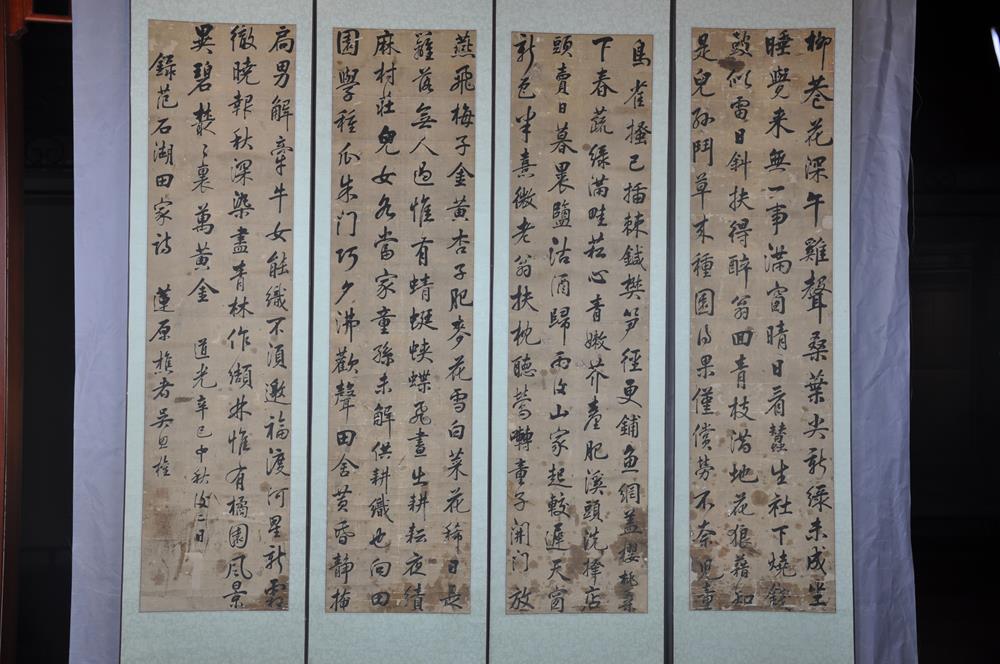 柳巷花深午雞聲桑葉尖新綠未成坐
睡覺来無一事滿窗晴日看蠶生社下燒錢
鼓似雷日斜扶得醉翁回青枝滿地花狼藉知
是兒孫鬥草来種園得果僅償勞不奈兒童
鳥雀搔已插棘鍼樊筍徑更鋪魚網蓋櫻桃桑
下春蔬綠滿畦菘心青嫩芥薹肥溪頭洗擇店
頭賣日暮裹鹽沽酒歸雨後山家起較遲天窗
新色半熹微老翁扶枕聽鶯囀童子開門放
燕飛梅子金黃杏子肥麥花雪白菜花稀日長
籬落無人過惟有蜻蜓蛺蝶飛晝出耕耘夜績
麻村莊兒女各當家童孫未解供耕織也向田
園學種瓜朱門巧夕沸歡聲田舍黃昏靜掩
扃男解牽牛女能織不須邀福渡河星新霜
徹曉報秋深染盡青林作纈林惟有橘園風景
異碧叢叢裏萬黃金 道光辛巳中秋後二日
錄范石湖田家詩 蓮原樵者吳